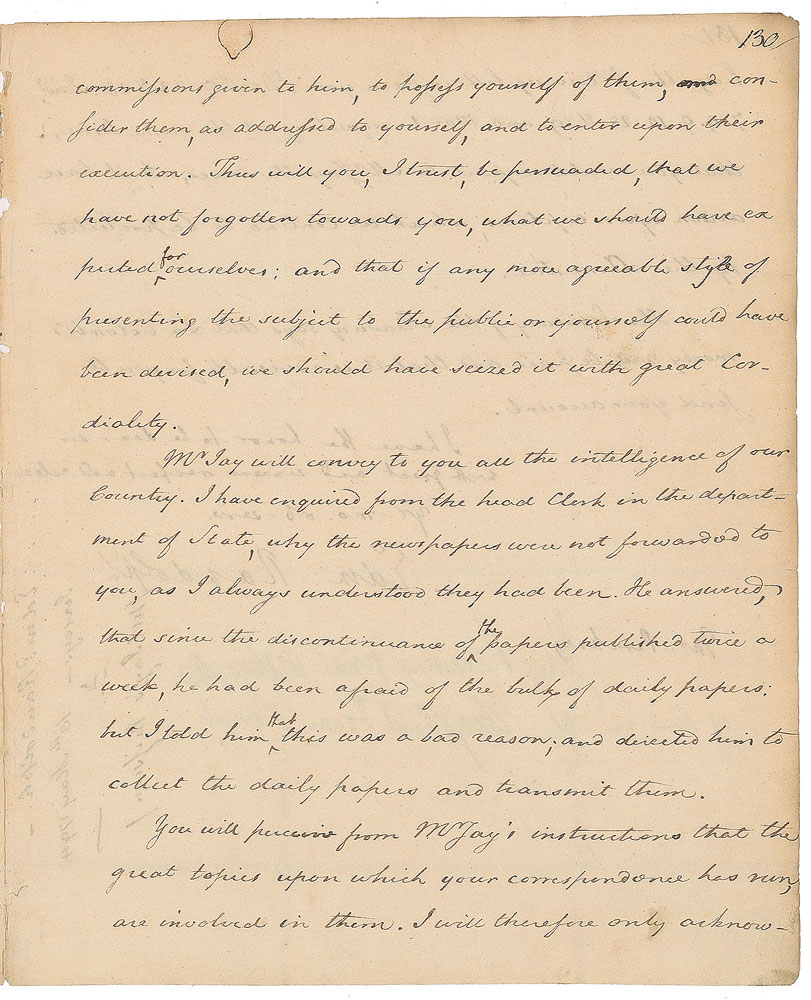 130
commissions given to him, to possess yourself of them, and con-
sider them, as addressed to yourself, and to enter upon their
execution. Thus will you, I trust, be persuaded, that we
have not forgotten towards you, what we should have ex
pected for ourselves; and that if any more agreeable style of
presenting the subject to the public or yourself could have
been devised, we should have seized it with great Cor-
diality.
Mr Jay will convey to you all the intelligence of our
Country. I have enquired from the head Clerk in the depart-
ment of State, why the newspapers were not forwarded to
you, as I always understood they had been. He answered,
that since the discontinuance of the papers published twice a
week, he had been afraid of the bulk of daily papers:
but I told him that this was a bad reason; and directed him to
collect the daily papers and transmit them.
You will perceive from Mr Jay's instructions that the
great topics upon which your correspondence has run,
are involved in them. I will therefore only acknow-